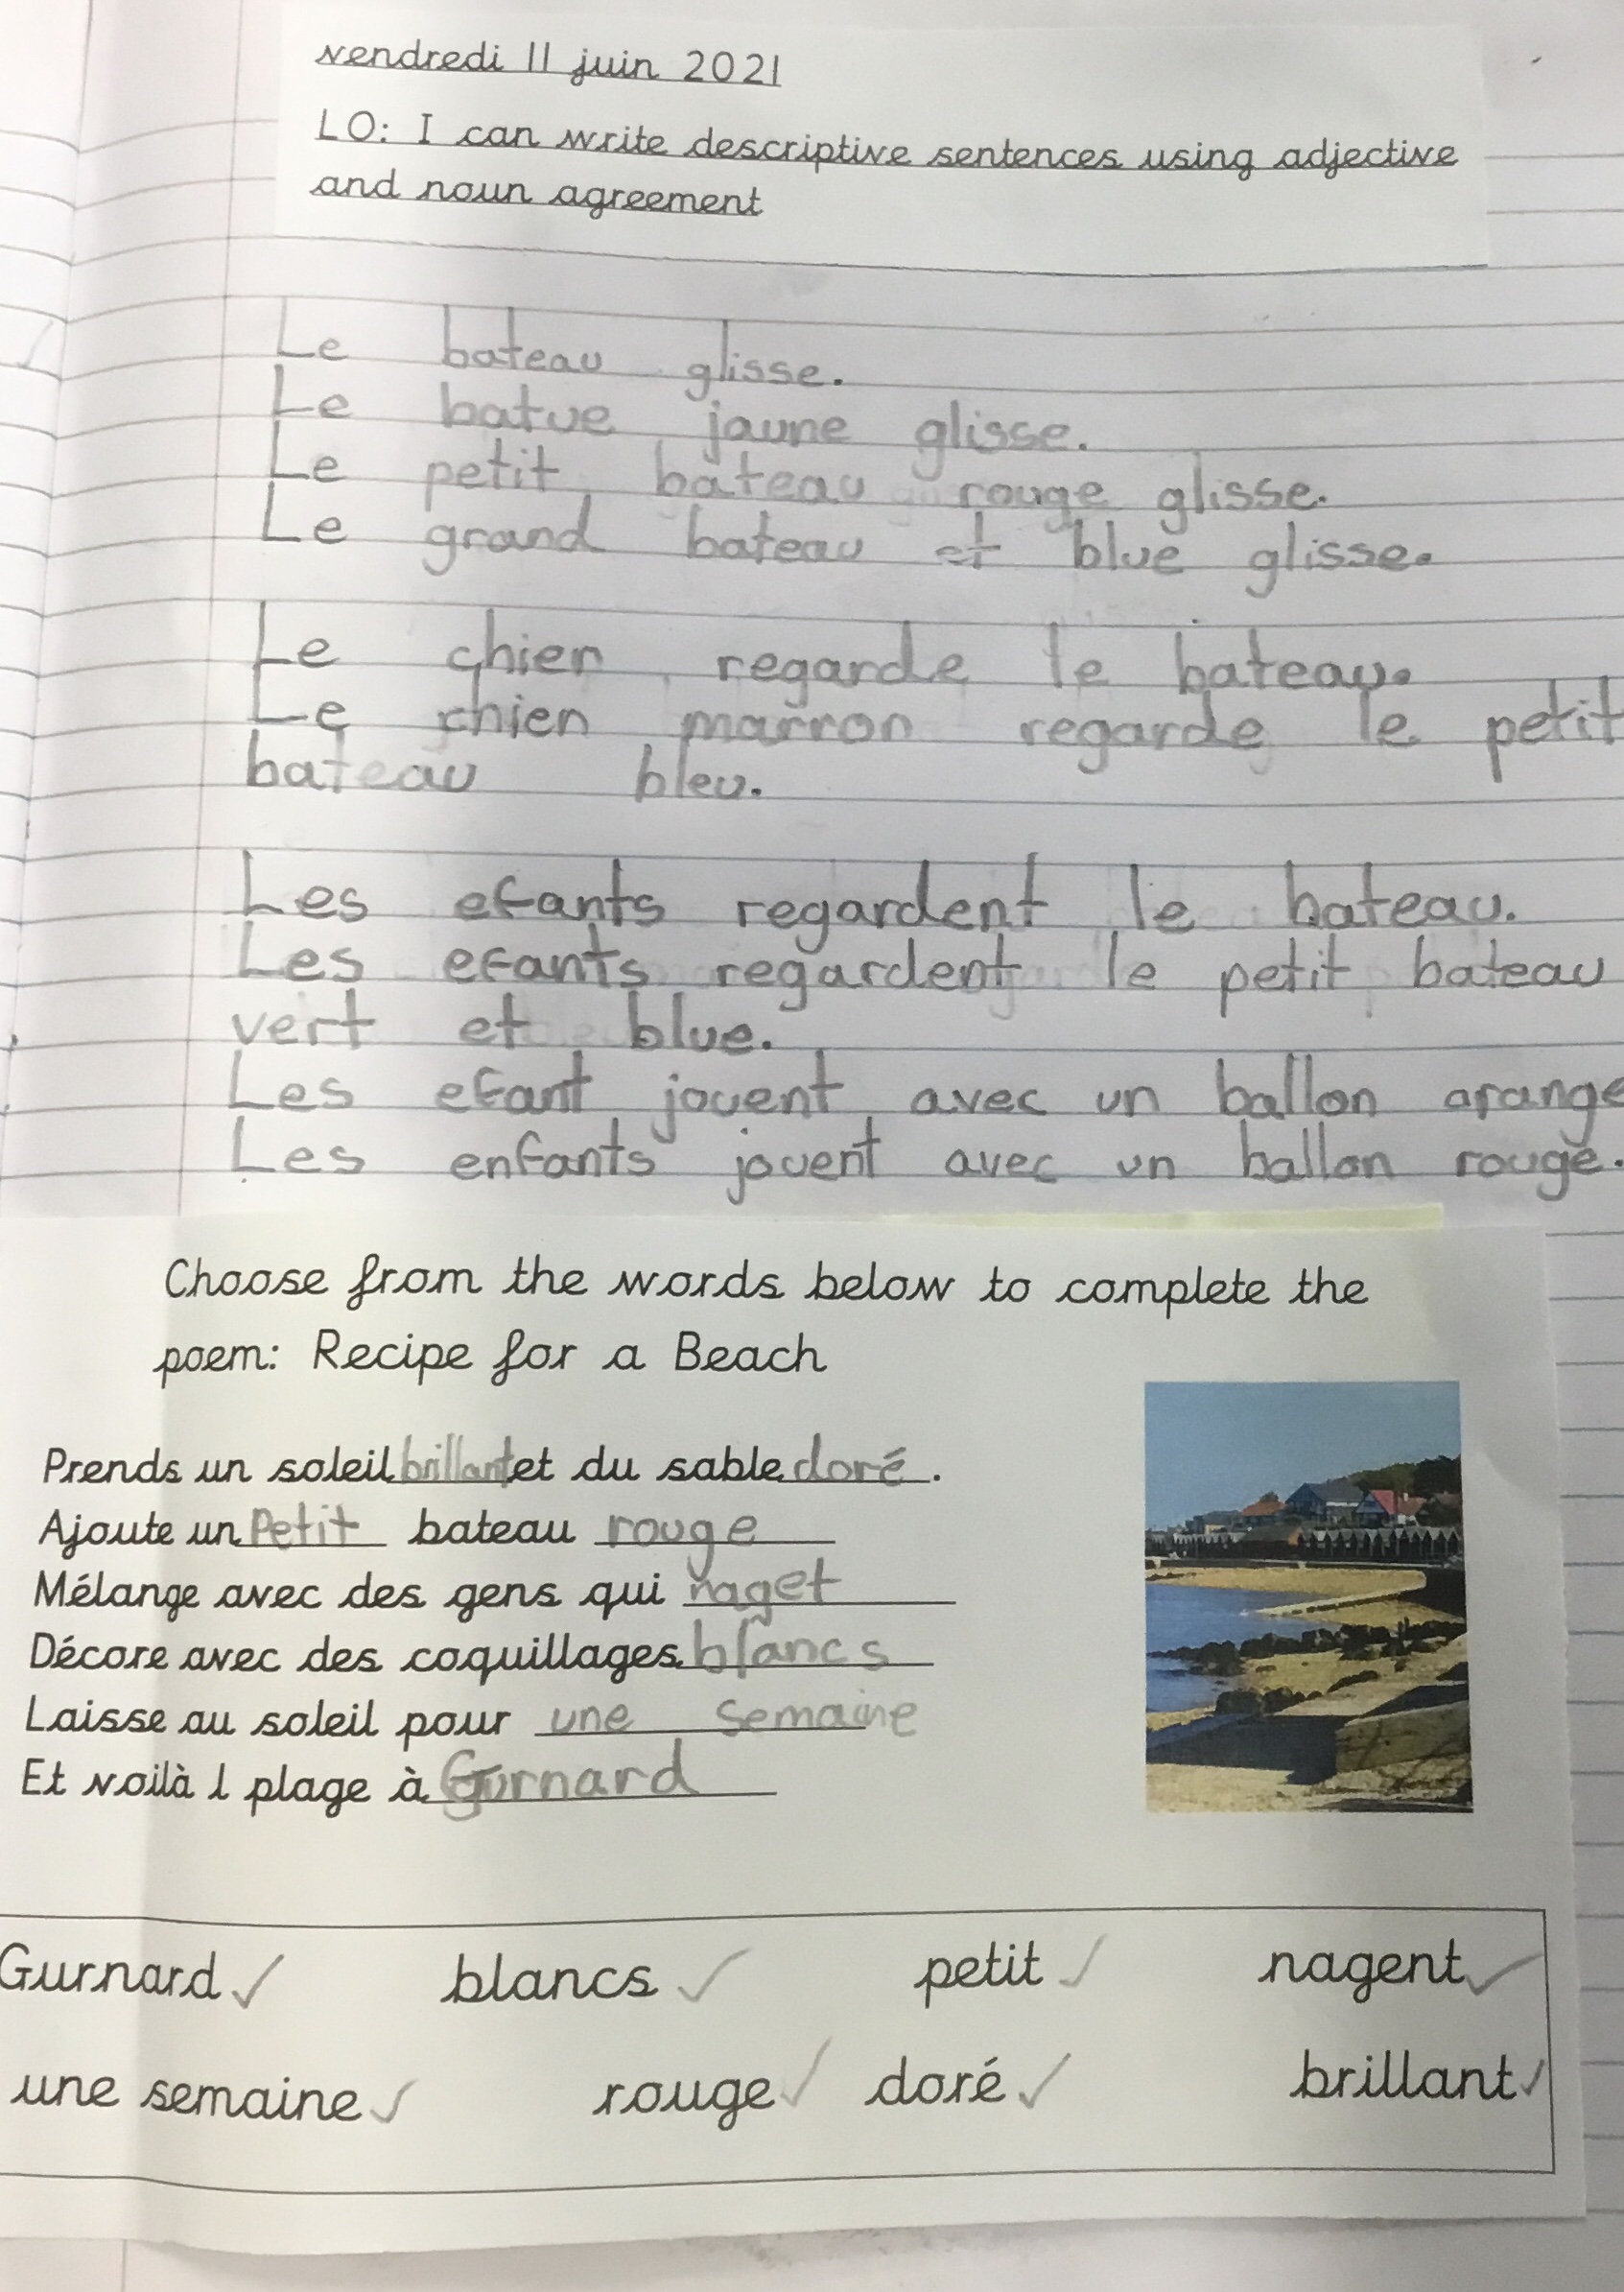 vendredi 11 juin 2021
LO: I can write descriptive sentences using adjective
and noun agreement
Le bateau glisse.
Le batue jaune glisse.
Le petit bateau rouge glisse.
Le grand bateau et blue glisse.
Le chien regarde le bateau.
Le chien marron regarde le petit
bateau bleu.
Les efants regardent le bateau.
Les efants regardent le petit bateau
vert et blue.
Les efant jouent avec un ballon orange
Les enfants jouent avec un ballon rouge.
Choose from the words below to complete the
poem: Recipe for a Beach
Prends un soleil brillant et du sable doré.
Ajoute un Petit bateau rouge
Mélange avec des gens qui naget
Décore avec des coquillages blancs
Laisse au soleil pour une semaine
Et voilà l plage à Gurnard
Gurnard blancs petit nagent
une semaine rouge doré brillant